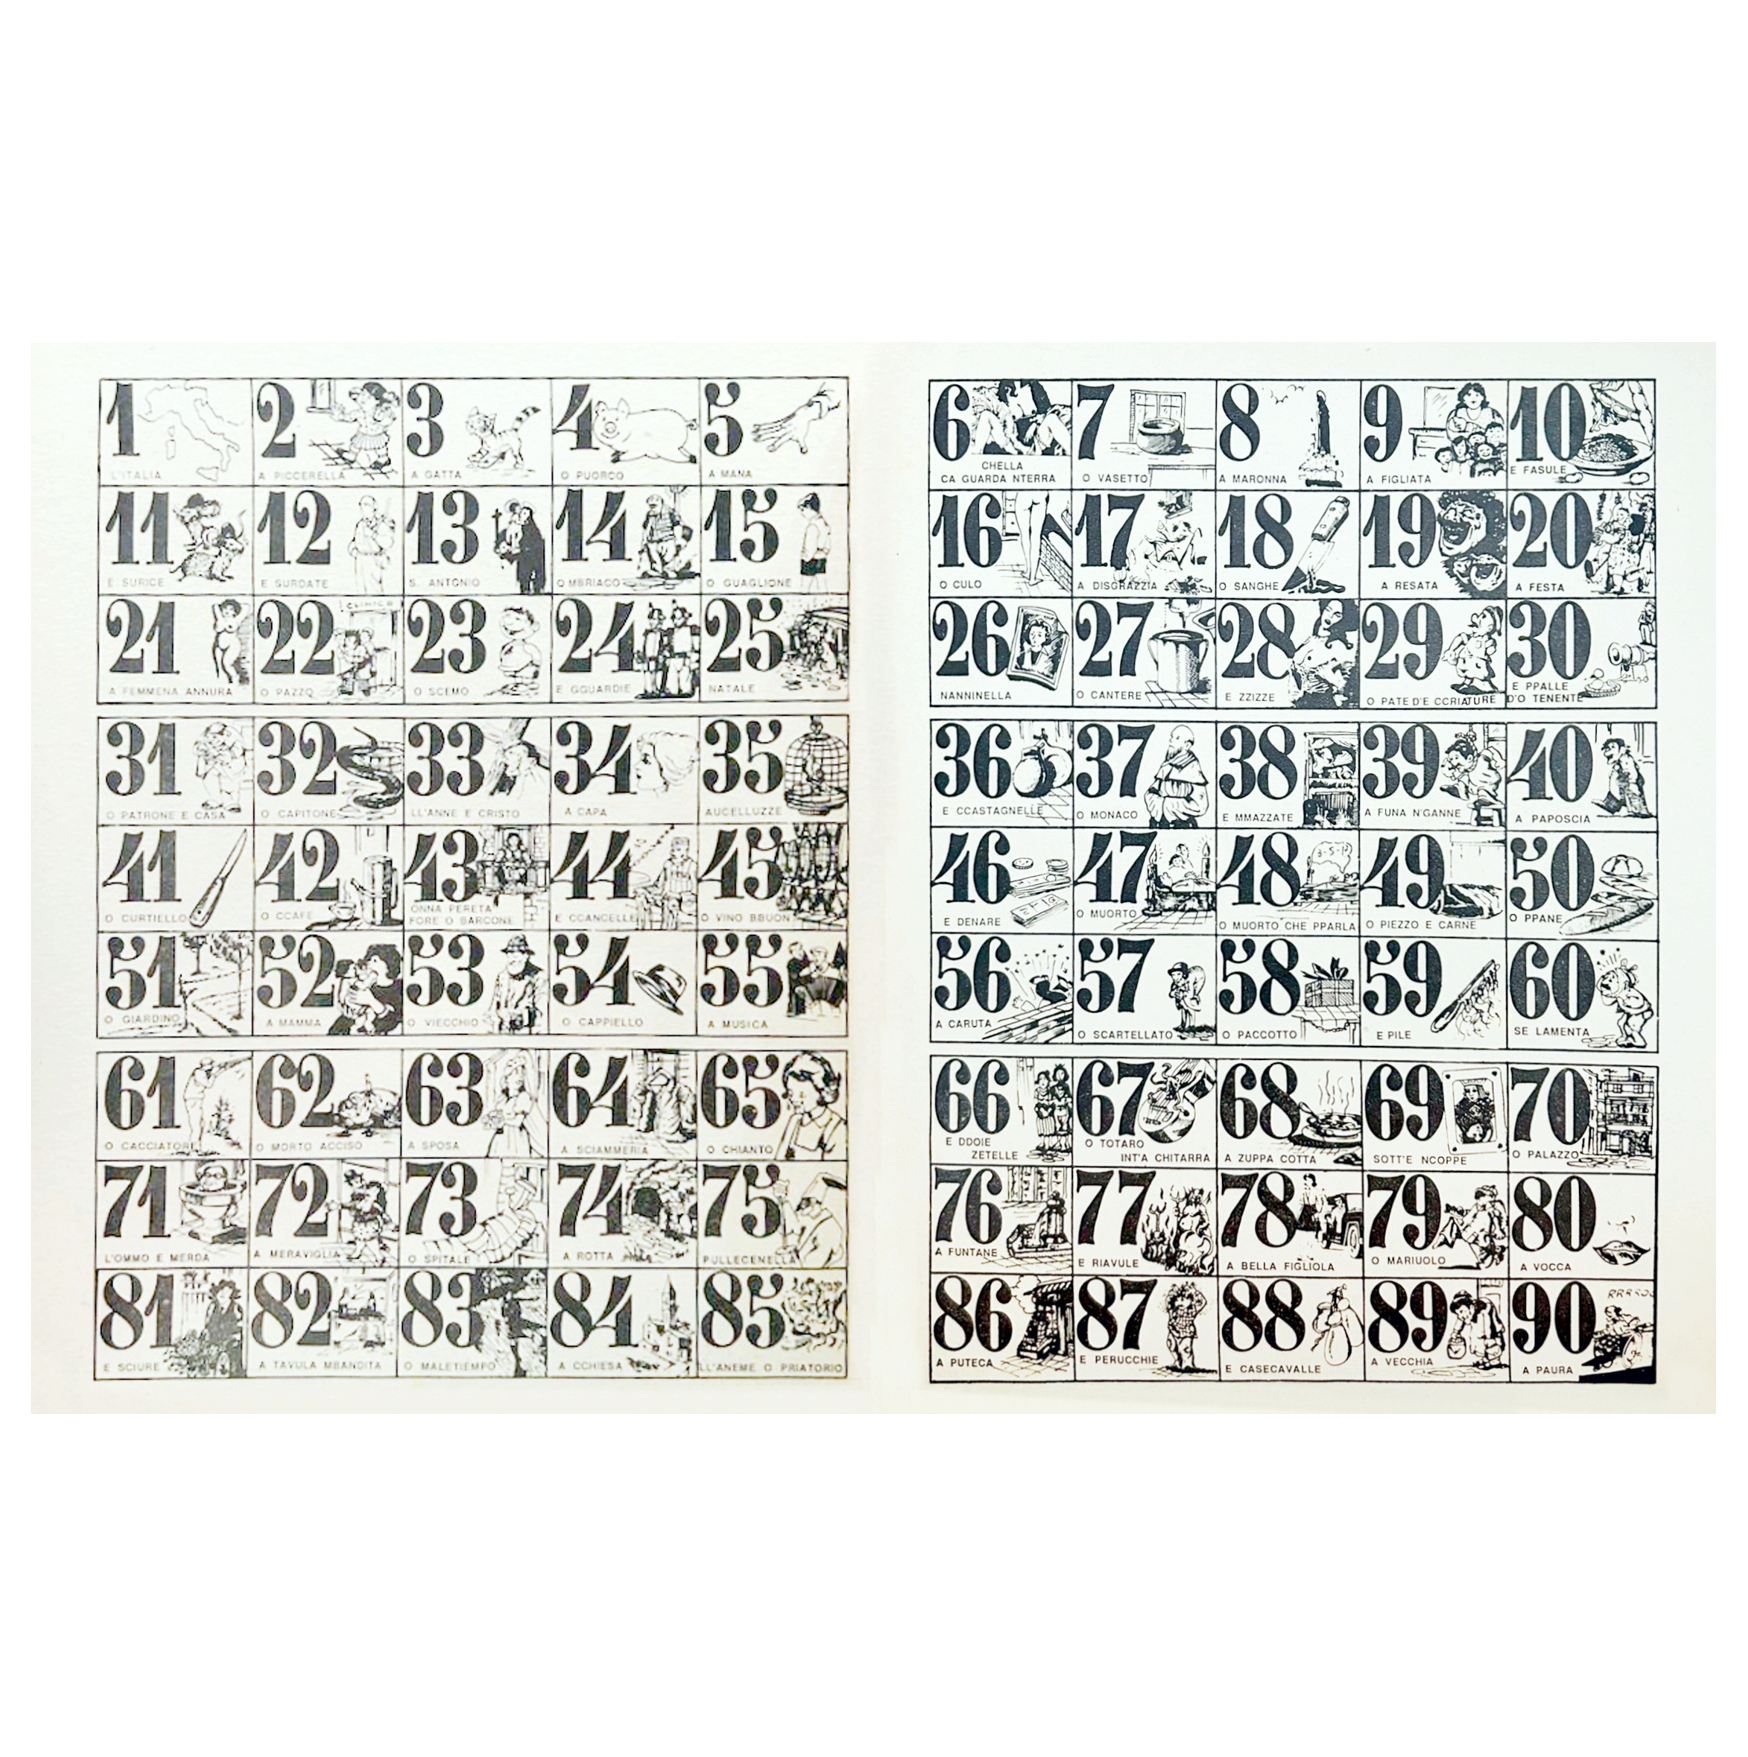 1 L'ITALIA
2 A PICCERELLA
3 A GATTA
4 O PUORCO
5 A MANA
11 E SURICE
12 E SURDATE
13 S. ANTONIO
14 O MBRIACO
15 O GUAGLIONE
21 A FEMMENA ANNURA
22 O PAZZO
CLINICA
23 O SCEMO
24 E GGUARDIE
25 NATALE
31 O PATRONE E CASA
32 O CAPITONE
33 LL'ANNE E CRISTO
34 A CAPA
35 AUCELLUZZE
41 O CURTIELLO
42 O CCAFE
43 ONNA PERETA
FORE O BARCONE
44 E CCANCELLE
45 O VINO BBUON
51 O GIARDINO
52 A MAMMA
53 O VIECCHIO
54 O CAPPIELLO
55 A MUSICA
61 O CACCIATORE
62 O MORTO ACCISO
63 A SPOSA
64 A SCIAMMERIA
65 O CHIANTO
71 L'OMMO E MERDA
72 A MERAVIGLIA
73 O SPITALE
74 A ROTTA
75 PULLECENELLA
81 E SCIURE
82 A TAVULA MBANDITA
83 O MALETIEMPO
84 A CCHIESA
85 LL'ANEME O PRIATORIO
6 CHELLA
CA GUARDA NTERRA
7 O VASETTO
8 A MARONNA
9 A FIGLIATA
10 E FASULE
16 O CULO
17 A DISGRAZZIA
18 O SANGHE
19 A RESATA
20 A FESTA
26 NANNINELLA
27 O CANTERE
28 E ZZIZZE
29 O PATE D'E CCRIATURE
30 E PPALLE
D'O TENENTE
36 E CCASTAGNELLE
37 O MONACO
38 E MMAZZATE
39 A FUNA N'GANNE
40 A PAPOSCIA
46 E DENARE
47 O MUORTO
48 O MUORTO CHE PPARLA
49 O PIEZZO E CARNE
50 O PPANE
56 A CARUTA
57 O SCARTELLATO
58 O PACCOTTO
59 E PILE
60 SE LAMENTA
66 E DDOIE
ZETELLE
67 O TOTARO
INT'A CHITARRA
68 A ZUPPA COTTA
69 SOTT'E NCOPPE
70 O PALAZZO
76 A FUNTANE
77 E RIAVULE
78 A BELLA FIGLIOLA
79 O MARIUOLO
80 A VOCCA
86 A PUTECA
87 E PERUCCHIE
88 E CASECAVALLE
89 A VECCHIA
90 A PAURA